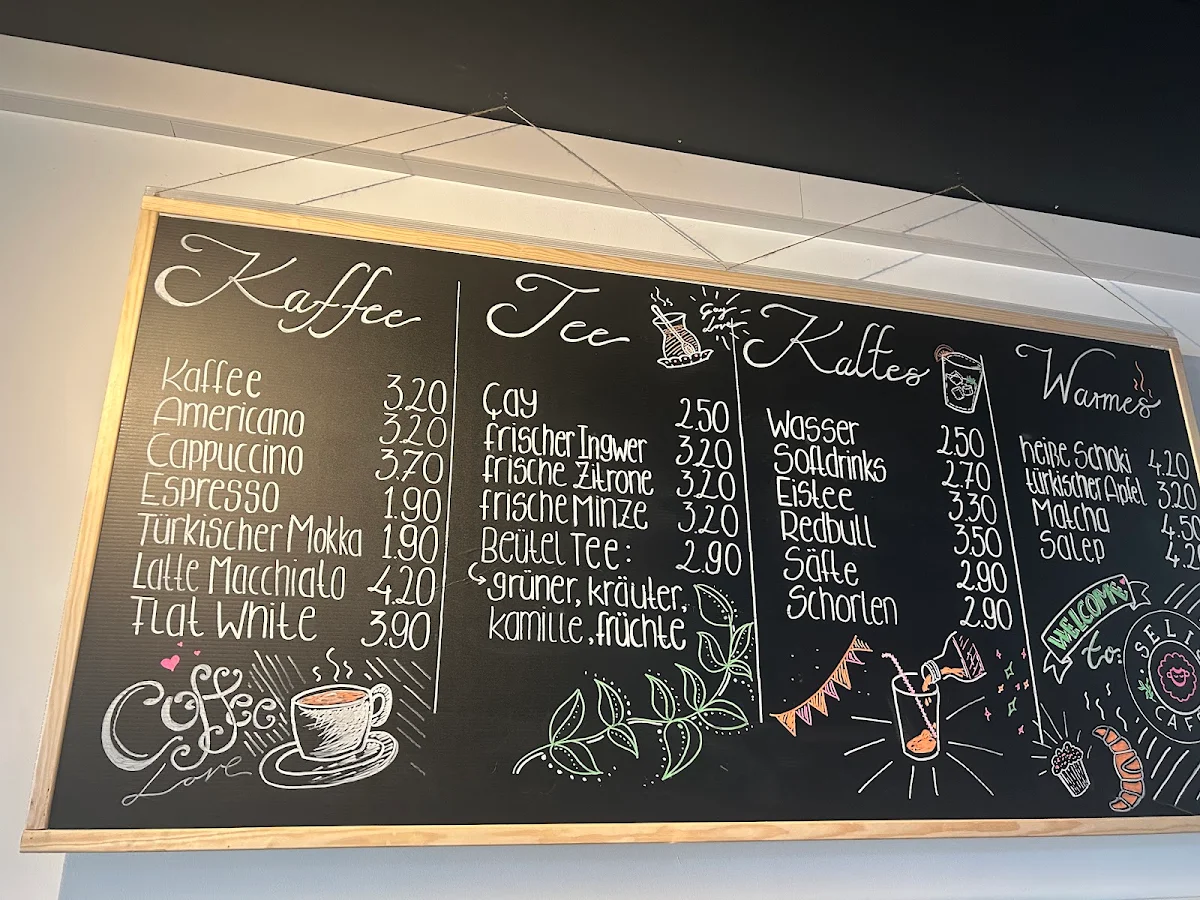 Kaffee
Kaffee 3.20
Americano 3.20
Cappuccino 3.70
Espresso 1.90
Türkischer Mokka 1.90
Latte Macchiato 4.20
Flat White 3.90
Coffee
Love
Tee
Çay
Love
Çay 2.50
frischer Ingwer 3.20
frische Zitrone 3.20
frische Minze 3.20
Beütel Tee: 2.90
grüner, kräuter,
kamille, früchte
Kaltes
Wasser 2.50
Softdrinks 2.70
Eistee 3.30
Redbull 3.50
Säfte 2.90
Schorlen 2.90
Warmes
heiße Schoki 4.20
türkischer Apfel 3.20
Matcha 4.50
Salep 4.2
WELCOME
to:
SELI
CAF